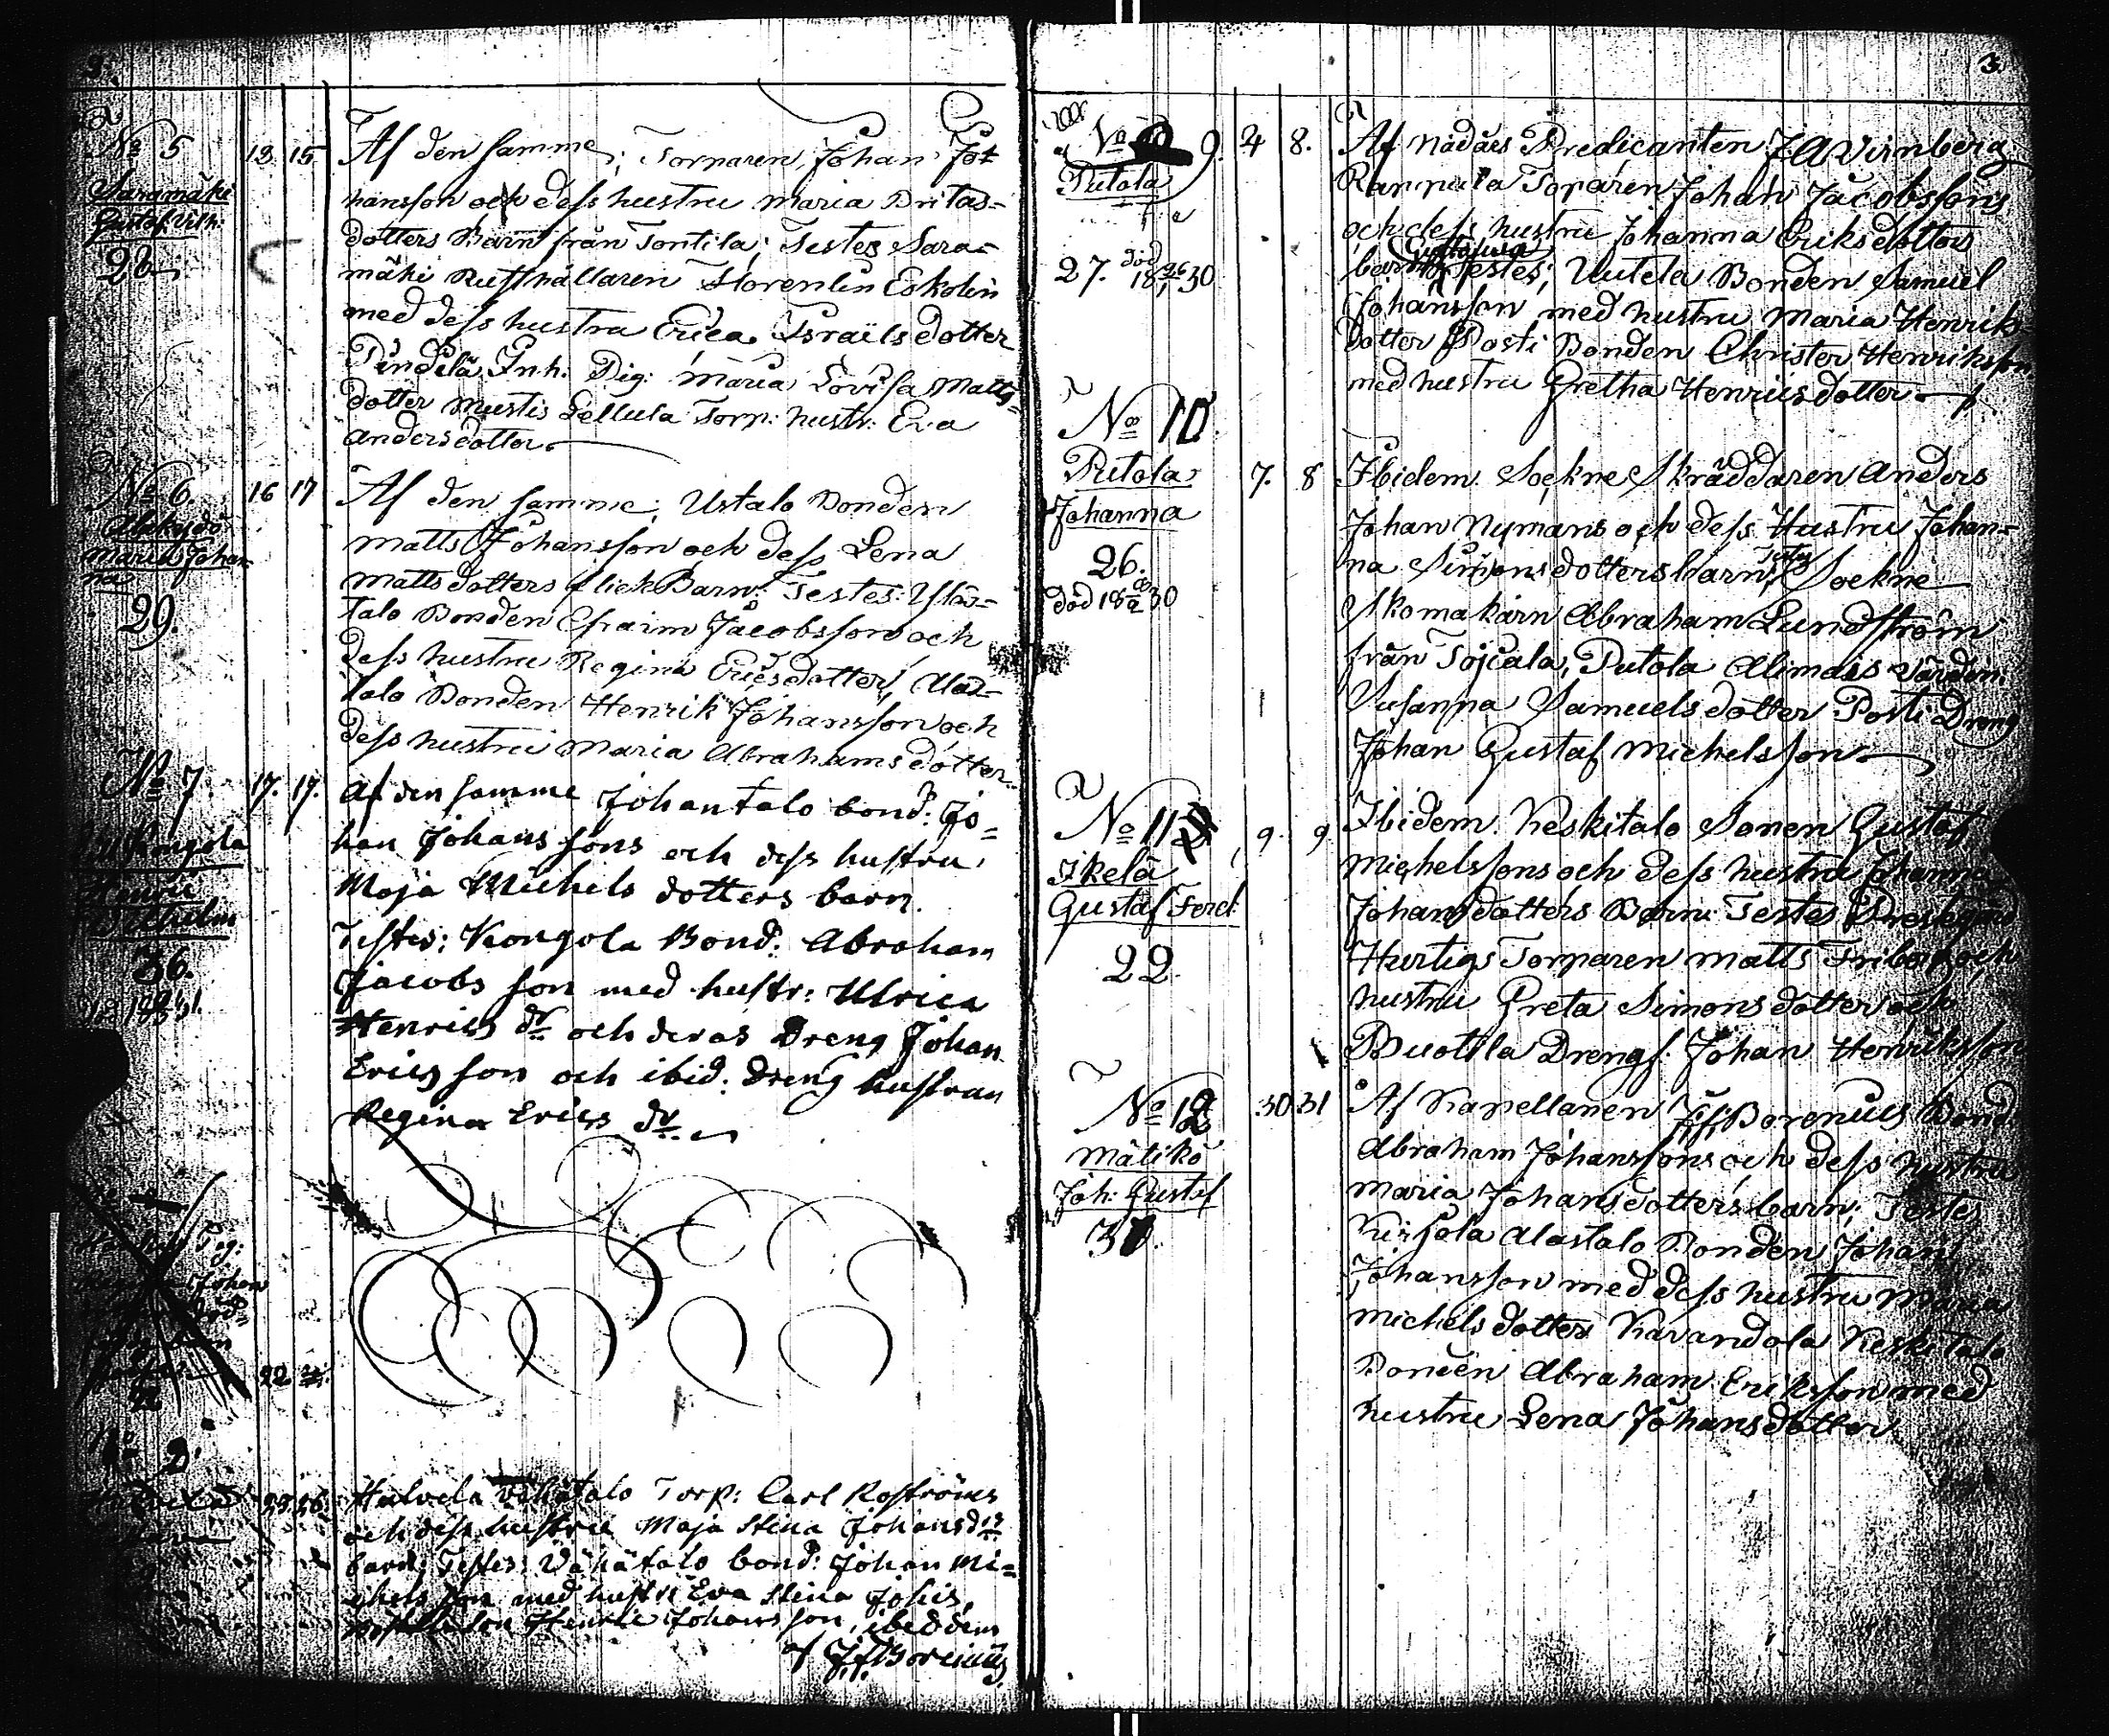 3.
No 5
Saramäki
Gustaf Vilh:
28
13. 15.
Af den samme; Torparen Johan Jo=
hansson och dess hustru Maria Britas=
dotters Barn från Tontila; Testes Sara=
mäki Rusthållaren Florentin Eskolin
med dess hustru Erica Israëls dotter
Inh: Pig: Maria Lovisa Matts=
dotter Mustis Torp: hustr: Eva
Andersdotter
No 6.
Maria Johan=
na
29.
16 17
Af den samme; Ustalo Bonden
Matts Johansson och dess Lena
Mattsdotters flick Barn; Testes:
talo Bonden Efraim Jacobsson och
dess hustru Regina Ericsdotter,
talo Bonden Henrik Johansson och
dess hustru Maria Abrahamsdotter
No 7
Kongola
Henric
Wilhelm
36.
17. 17.
Af den samme Johantalo bond: Jo=
han Johans sons och dess hustru,
Maja Michels dotters barn.
Testes; Kongola Bond: Abraham
Jacobs son med hustr: Ulrica
Henrics dr och deras Dreng Johan
Erics son och ibid: Dreng hustrun
Regina Erics dr
22
8
25. 26.
Vähätalo Torp: Carl Roströms
och dess hustru Maja Stina Johansdr
barn; Testes: Vähätalo bond: Johan Mi=
chels son med hustr: Eva Stina Johis,
son Henric Johans son, ibeddem
af J:J: Borenius
No 9.
Putola
27. död 18 26/1 30
4 8.
Af Nådårs Predicanten J A Virnberg
Rampula Torparen Johan Jacobssons
och dess hustru Johanna Eriksdotters
barn Testes; Uutela Bonden Samuel
Johansson med hustru Maria Henrik
dotter Posti Bonden Christer Henriksson
med hustru Gretha Henricsdotter
No 10
Putola
Johanna
26.
död 18 30
7. 8
Ibidem Sockne Skräddaren Anders
Johan Nymans och dess Hustru Johan=
na Simonsdotters barn; Sockne
Skomakarn Abraham Lundström
från Töjcala, Putola
Susanna Samuelsdotter Posti Dreng
Johan Gustaf Michelsson
No 11
Ikelä
Gustaf Ferd:
22
9. 9
Ibidem. Keskitalo Sonen Gustaf
Michelssons och dess hustru Johanna
Johansdotters Barn: Testes
Hurtigs Torparen Matts Friberg och
hustru Greta Simonsdotter och
Buottila Drengs: Johan Henriksson
No 12
Mälikö
Joh: Gustaf
31.
30 31
Af Kapellanen J:J: Borenius Bond
Abraham Johanssons och dess hustru
Maria Johansdotters barn; Testes
Alastalo Bonden Johan
Johansson med dess hustru Maria
Michelsdotter Karandola Keskitalo
Bonden Abraham Eriksson med
hustru Lena Johansdotter